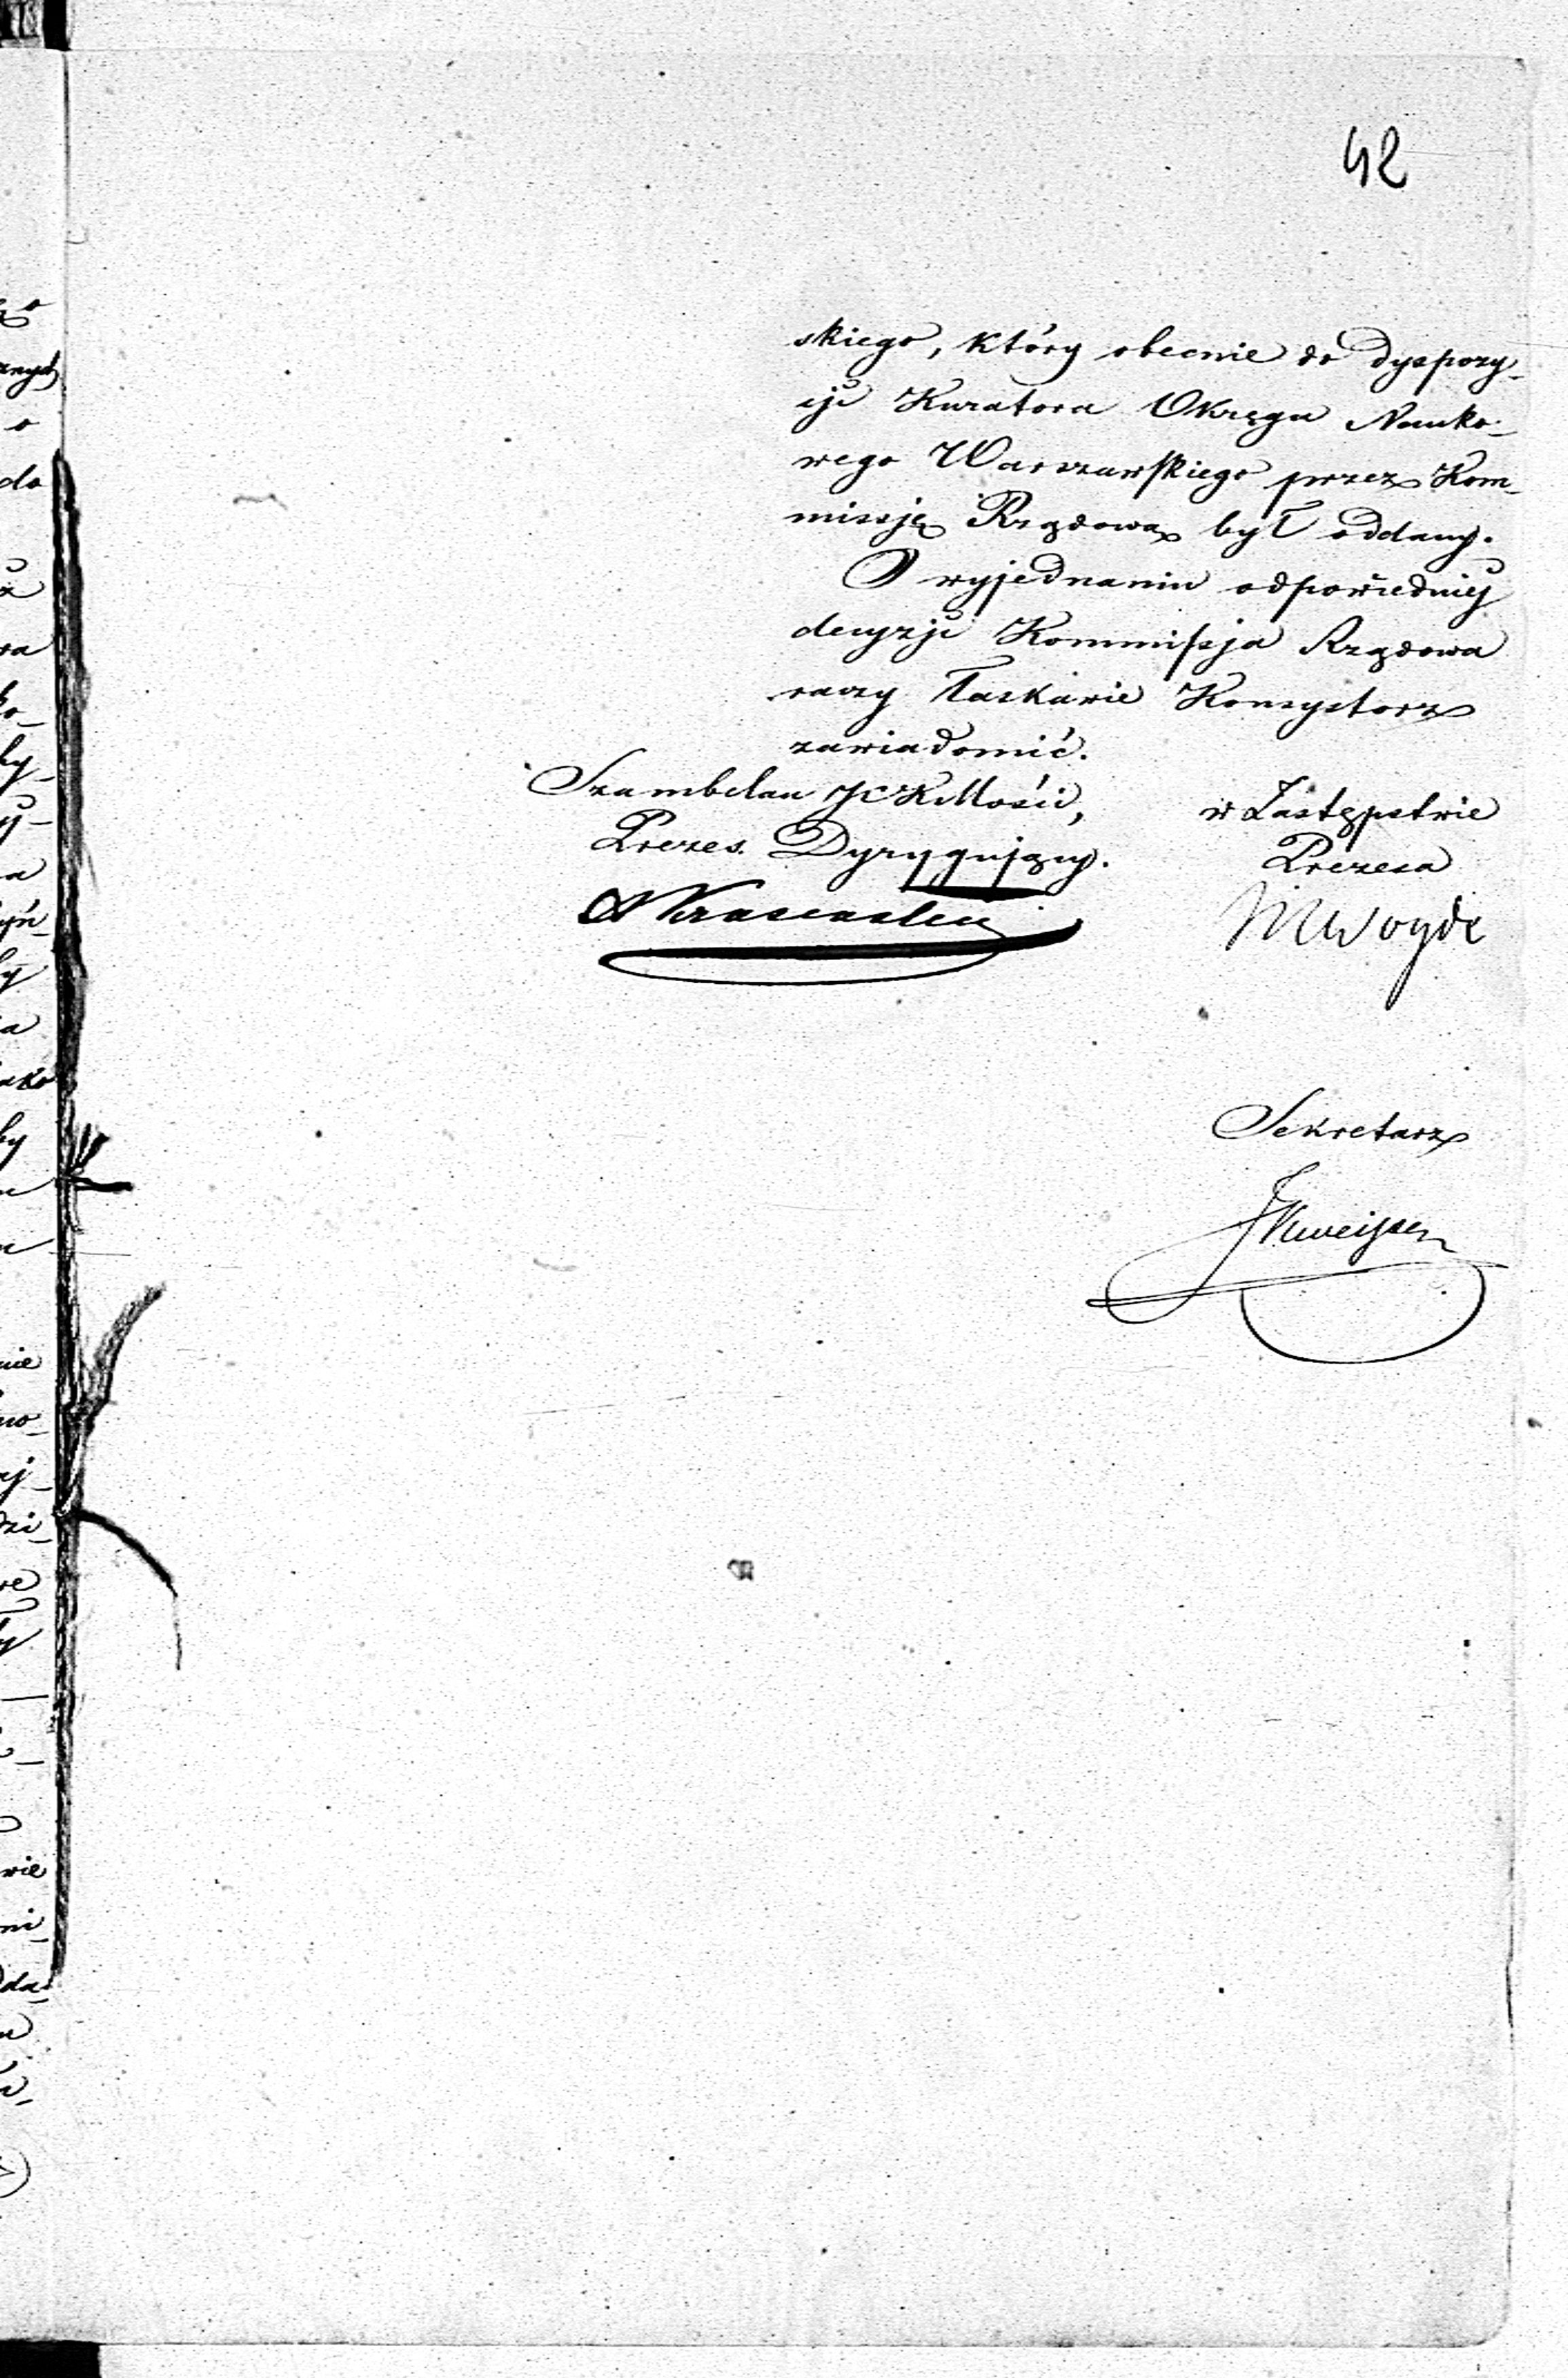 42
skiego, który obecnie do dyspozy-
cji Kuratora Okręgu Nauko-
wego Warszawskiego przez Kom-
missję Rządową był oddany.
O wyjednaniu odpowiedniej
decyzji Kommissja Rządowa
raczy łaskawie Konsystorz
zawiadomić.
Szambelan JCKMości,
Prezes Dyrygujący.
w Zastępstwie
Prezesa
Sekretarz